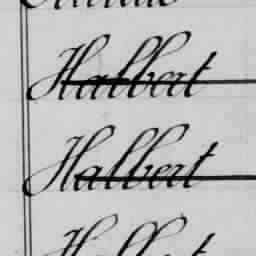 Halbert
Halbert